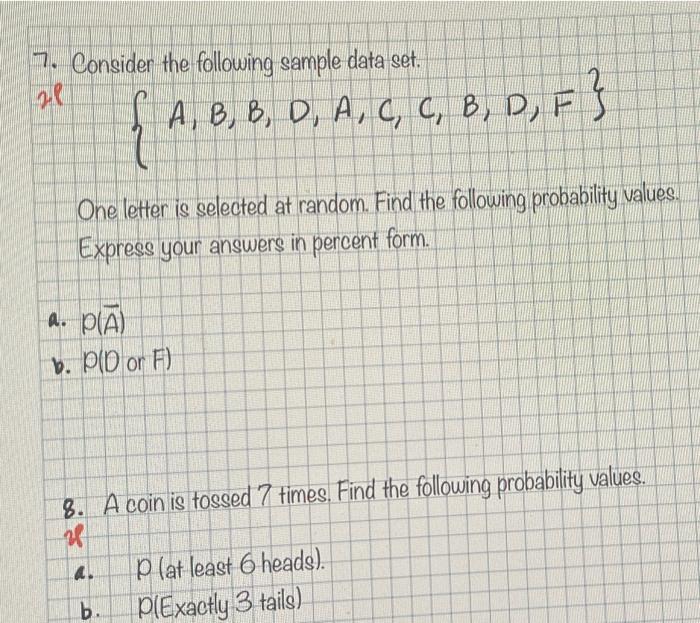 7. Consider the following sample data set.
{ A, B, B, D, A, C, C, B, D, F }
One letter is selected at random. Find the following probability values.
Express your answers in percent form.
a. P(A̅)
b. P(D or F)
8. A coin is tossed 7 times. Find the following probability values.
a. P (at least 6 heads).
b. P(Exactly 3 tails)